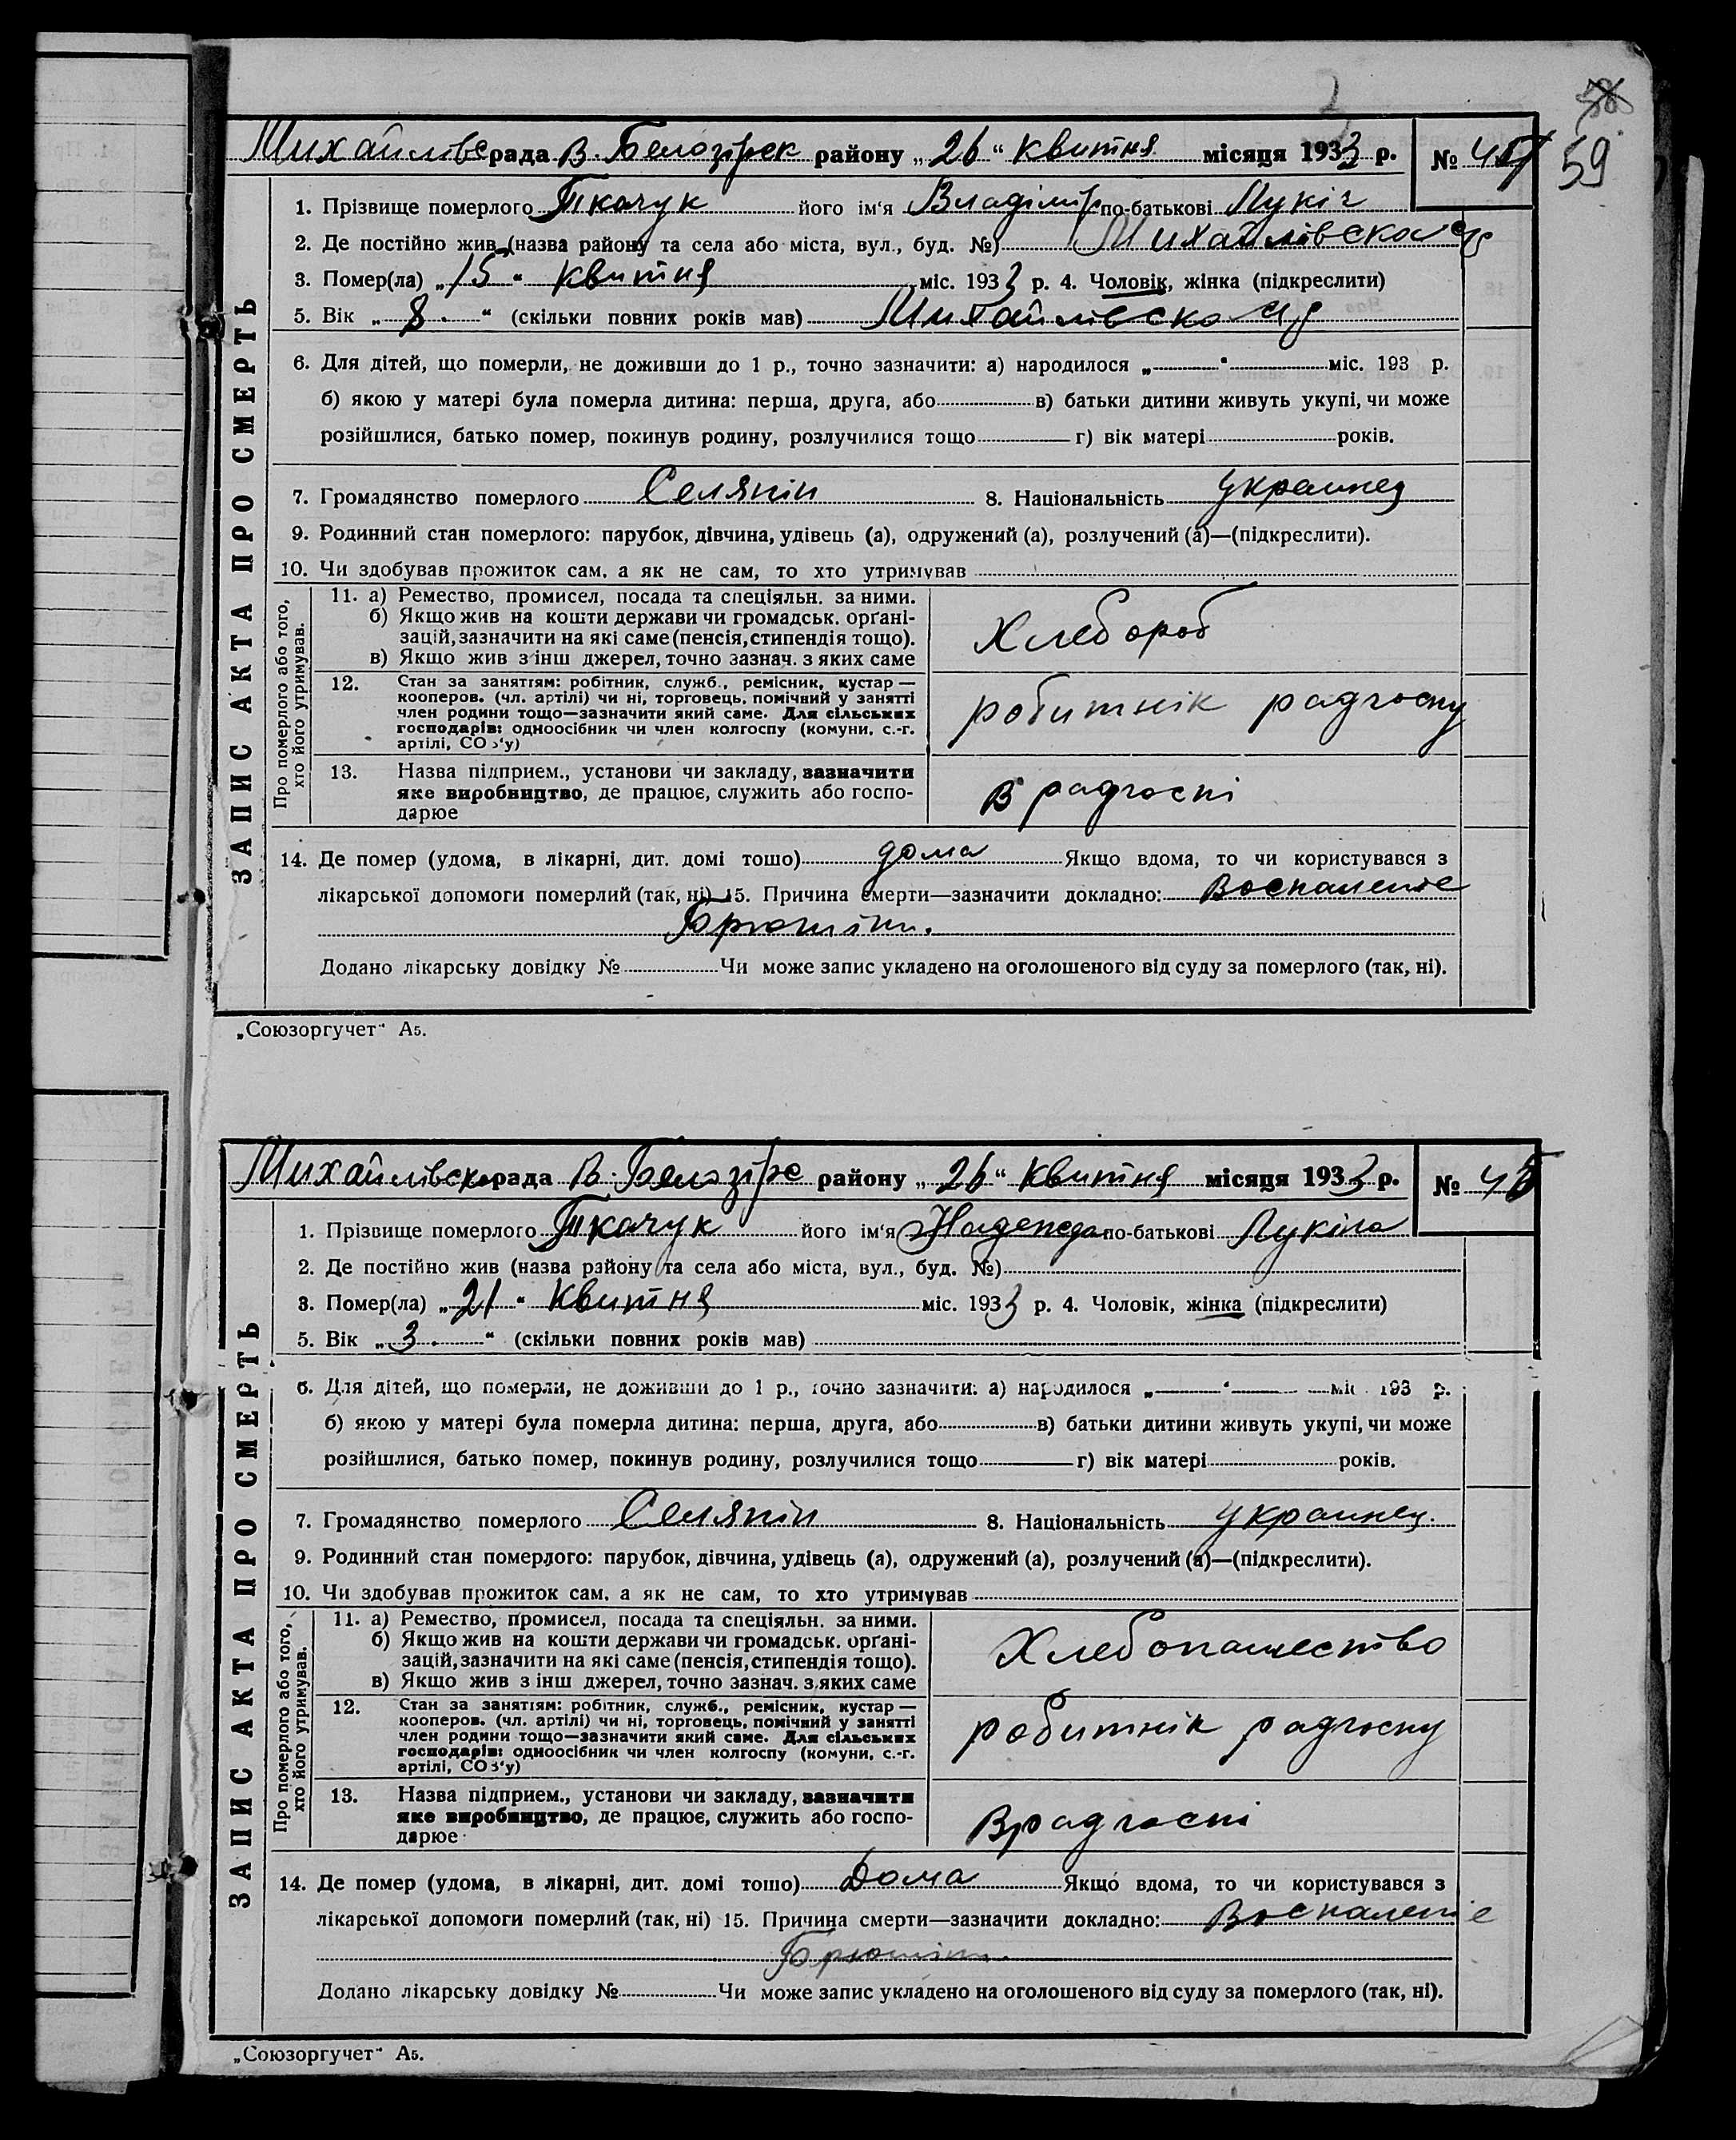 58
59
Михайлівс рада В. Белозірск району „26“ квитня місяця 1933 р. № 45
ЗАПИС АКТА ПРО СМЕРТЬ
1. Прізвище померлого Ткачук його ім'я Владімір по-батькові Лукіч
2. Де постійно жив (назва району та села або міста, вул., буд. №) Михайлівска
3. Помер(ла) „15“ квитня міс. 1933 р. 4. Чоловік, жінка (підкреслити)
5. Вік „8.“ (скільки повних років мав) Михайлівска
6. Для дітей, що померли, не доживши до 1 р., точно зазначити: а) народилося „ “ міс. 193 р.
б) якою у матері була померла дитина: перша, друга, або в) батьки дитини живуть укупі, чи може
розійшлися, батько помер, покинув родину, розлучилися тощо г) вік матері років.
7. Громадянство померлого Селянін 8. Національність украинец
9. Родинний стан померлого: парубок, дівчина, удівець (а), одружений (а), розлучений (а)—(підкреслити).
10. Чи здобував прожиток сам, а як не сам, то хто утримував
Про померлого або того,
хто його утримував.
11. а) Ремество, промисел, посада та спеціяльн. за ними.
б) Якщо жив на кошти держави чи громадськ. органі-
зацій, зазначити на які саме (пенсія, стипендія тощо).
в) Якщо жив з інш джерел, точно зазнач. з яких саме
Хлебороб
12. Стан за заняттям: робітник, служб., ремісник, кустар —
кооперов. (чл. артілі) чи ні, торговець, помічний у занятті
член родини тощо—зазначити який саме. Для сільських
господарів: одноосібник чи член колгоспу (комуни, с.-г.
артілі, СОЗ'у)
робитнік радгоспу
13. Назва підприєм., установи чи закладу, зазначити
яке виробництво, де працює, служить або госпо-
дарює
В радгоспі
14. Де помер (удома, в лікарні, дит. домі тошо) дома Якщо вдома, то чи користувався з
лікарської допомоги померлий (так, ні) 15. Причина смерти—зазначити докладно: Воспаление
Брюшіни.
Додано лікарську довідку № Чи може запис укладено на оголошеного від суду за померлого (так, ні).
„Союзоргучет“ А5.
Михайлівска рада В. Белозірс району „26“ квитня місяця 1933 р. № 46
ЗАПИС АКТА ПРО СМЕРТЬ
1. Прізвище померлого Ткачук його ім'я Надежда по-батькові Лукіна
2. Де постійно жив (назва району та села або міста, вул., буд. №)
3. Помер(ла) „21“ Квитня міс. 1933 р. 4. Чоловік, жінка (підкреслити)
5. Вік „3.“ (скільки повних років мав)
6. Для дітей, що померли, не доживши до 1 р., точно зазначити: а) народилося „ “ міс. 193 р.
б) якою у матері була померла дитина: перша, друга, або в) батьки дитини живуть укупі, чи може
розійшлися, батько помер, покинув родину, розлучилися тощо г) вік матері років.
7. Громадянство померлого Селянін 8. Національність украинец.
9. Родинний стан померлого: парубок, дівчина, удівець (а), одружений (а), розлучений (а)—(підкреслити).
10. Чи здобував прожиток сам, а як не сам, то хто утримував
Про померлого або того,
хто його утримував.
11. а) Ремество, промисел, посада та спеціяльн. за ними.
б) Якщо жив на кошти держави чи громадськ. органі-
зацій, зазначити на які саме (пенсія, стипендія тощо).
в) Якщо жив з інш джерел, точно зазнач. з яких саме
Хлебопашество
12. Стан за заняттям: робітник, служб., ремісник, кустар —
кооперов. (чл. артілі) чи ні, торговець, помічний у занятті
член родини тощо—зазначити який саме. Для сільських
господарів: одноосібник чи член колгоспу (комуни, с.-г.
артілі, СОЗ'у)
робитнік радгоспу
13. Назва підприєм., установи чи закладу, зазначити
яке виробництво, де працює, служить або госпо-
дарює
В радгоспі
14. Де помер (удома, в лікарні, дит. домі тошо) Дома Якщо вдома, то чи користувався з
лікарської допомоги померлий (так, ні) 15. Причина смерти—зазначити докладно: Воспаленіе
Брюшіни.
Додано лікарську довідку № Чи може запис укладено на оголошеного від суду за померлого (так, ні).
„Союзоргучет“ А5.